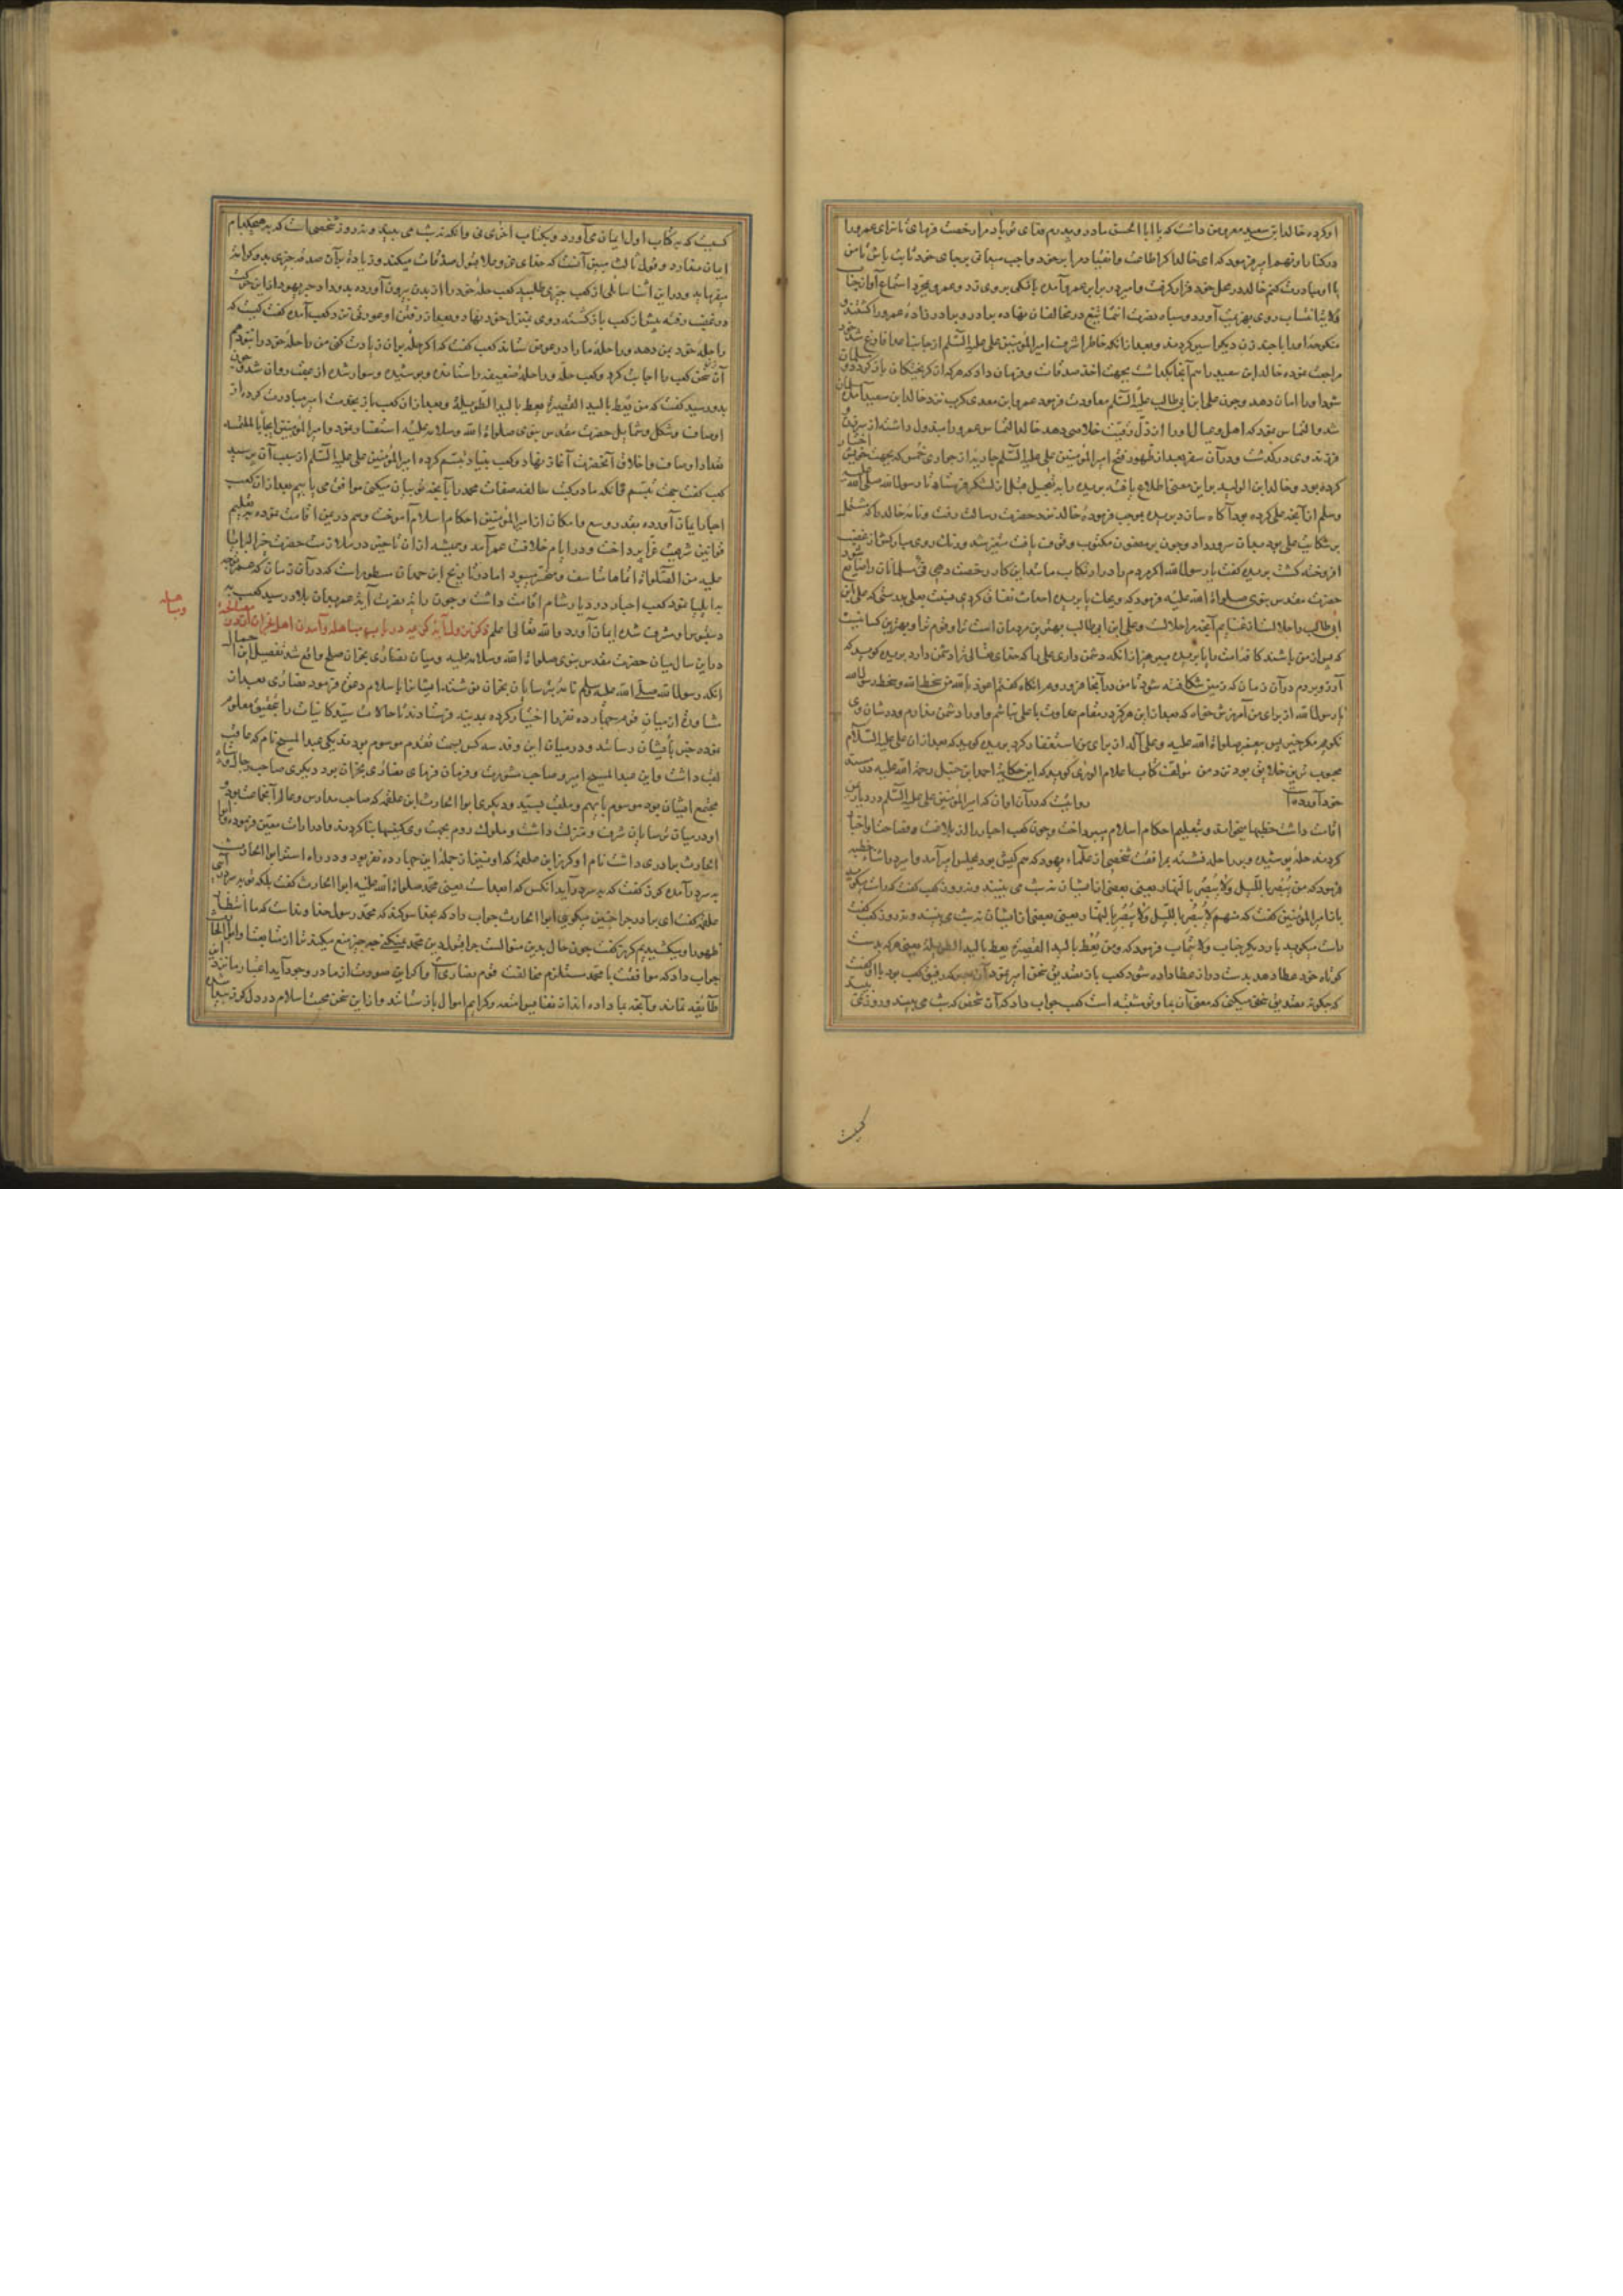 او کرده خالد ابن سعید معروض داشت که یا ابا الحسن مادر و پدرم فدای تو باد مرا رخصت فرمای تا سزای عمرو را
در کنار او نهم امیر فرمود که ای خالد اگر اطاعت و انقیاد مرا بر خود واجب میدانی بر جای خود ثابت باش تا من
با او مبادرت کنم خالد در محل خود قرار گرفت و امیر در برابر عمرو آمده بانگی بر وی زد و عمرو بمجرد استماع آواز
روی بهزیمت آورد و سپاه نصرت در مخالفان نهاده برادر و برادرزاده عمرو را کشتند و
منکوحه او را با چند زن دیگر اسیر کردند و بعد از آنکه خاطر اشرف امیرالمؤمنین علی علیه السلام از فارغ شد
مراجعت نموده خالد ابن سعید را هم آنجا بگذاشت بجهت اخذ صدقات و فرمان داد که هر که از گریختگان باز گردد و مسلمان
شود او را امان دهد و چون علی ابن ابی طالب علیه السلام معاودت فرمود عمرو ابن معدی کرب نزد خالد ابن سعید آمده مسلمان
شد و التماس نمود که اهل و عیال او را از ذل رقیت خلاصی دهد خالد التماس عمرو را مبذول داشته از سر
فرزند وی درگذشت و در آن سفر بعد از ظهور فتح امیرالمؤمنین علی علیه السلام جاریه از جواری خمس که بجهت خویش اختیار
کرده بود و خالد ابن الولید بر این معنی اطلاع یافته بریده را به تعجیل قبل از لشکر فرستاد تا رسول الله صلی الله علیه
وسلم از آنچه علی کرده بود آگاه سازد بریده بموجب فرموده خالد نزد حضرت رسالت رفت و نامه خالد را که مشتمل
بر شکایت علی بود بدان سرور داد و چون بر مضمون مکتوب وقوف یافت متغیر شد و رنگ روی مبارکش از غضب
افروخته گشت بریده گفت یا رسول الله اگر مردم را در ارتکاب مانند این کار رخصت دهی فئ مسلمانان ضایع شود
حضرت مقدس نبوی صلواة الله علیه فرمود که ویحک یا بریده احداث نفاق کردی بدرستی که علی ابن
ابی طالب را حلالست از غنایم آنچه مرا حلالست و علی ابن ابی طالب بهترین مردمان است ترا و قوم ترا و بهترین کسانیست
که پس از من باشند کافه امت را یا بریده بپرهیز از آنکه دشمن داری علی را که خدای تعالی ترا دشمن دارد بریده گوید که
آرزو بردم در آن زمان که زمین شکافته شود تا من در آنجا فرو روم آنگاه گفتم اعوذ بالله من سخط الله و سخط رسول الله
یا رسول الله از برای من آمرزش خواه که بعد از این هرگز در مقام عداوت با علی نباشم و او را دشمن ندارم و در شان وی
نگویم مگر خیر پس پیغمبر صلواة الله علیه و علی آله از برای من استغفار کرد بریده گوید که بعد از آن علی علیه السلام
محبوب ترین خلایق بود نزد من مؤلف کتاب اعلام الوری گوید که این حکایة احمد ابن حنبل رحمة الله علیه در مسند
خود آورده روایتست که در آن اوان که امیرالمؤمنین علی علیه السلام در دیار یمن
اقامت داشت خطبها میخواند و بتعلیم احکام اسلام میپرداخت و چون کعب احبار از بلاغت و فصاحت
کردند حلهٔ پوشیده و بر راحله نشسته بمرافقت شخصی از علماء یهود که هم کیش بود بمجلس امیر آمد و امیر در اثناء خطبه
فرمود که من یبصر باللیل ولا یبصر بالنهار یعنی بعضی از ایشان بشب می بینند و بروز نه کعب گفت که راست میگوید
باز امیرالمؤمنین گفت که منهم لا یبصر باللیل ولا یبصر بالنهار یعنی بعضی از ایشان نه بشب می بینند و نه بروز کعب گفت
راست میگوید بار دیگر جناب ولایتمآب فرمود که و من یعط بالید القصیرة یعط بالید الطویلة یعنی هر که بدست
کوتاه خود عطا دهد بدست دراز عطا داده شود کعب باز تصدیق سخن امیر نمود آن یهود که رفیق کعب بود با او گفت
که چگونه تصدیق سخنی میکنی که معنی آن بر ما و تو مشتبه است کعب جواب داد که آن شخص که شب می بیند و روز نمی بیند
کیست
کسیست که به کتاب اول ایمان می آورد و بکتاب آخر نی و آنکه نه بشب می بیند و نه بروز شخصی است که بهیچکدام
ایمان ندارد و قول ثالث مبین آنست که خدای عز و علا قبول صدقات میکند و زیاده بر آن صدقه جزی
میفرماید و در این اثنا سایلی از کعب چیزی طلبید کعب حلهٔ خود را از بدن بیرون آورده بدو داد حبر یهود از این حرکت
در غضب رفته پیش از کعب بازگشته روی بمنزل خود نهاد و بعد از رفتن او عورتی نزد کعب آمده گفت کیست که
راحلهٔ خود بمن دهد و راحلهٔ ما را در عوض ستاند کعب گفت که اگر حلهٔ بر آن زیادت کنی من راحلهٔ خود را بتو دهم
آن زن سخن کعب را اجابت کرد و کعب حله و راحلهٔ ضعیفه را ستانده و پوشیده و سوار شده از عقب روان شد چون
بدو رسید گفت که من یعط بالید القصیرة یعط بالید الطویلة و بعد از آن کعب باز بخدمت امیر مبادرت کرده از
اوصاف و شکل و شمایل حضرت مقدس نبوی صلواة الله وسلامه علیه استفسار نمود و امیرالمؤمنین
تعداد اوصاف و اخلاق آنحضرت آغاز نهاد و کعب بنیاد تبسم کرده امیرالمؤمنین علی علیه السلام از سبب آن پرسید
کعب گفت جهت تبسم آنکه ما در کتب سالفه صفات محمد را بآنچه تو بیان میکنی موافق می یابیم بعد از آن کعب
احبار ایمان آورده بقدر وسع و امکان از امیرالمؤمنین احکام اسلام آموخت و هم در یمن اقامت نموده به تعلیم
قوانین شریعت غرا پرداخت و در ایام خلافت عمر آمد و همیشه از آن تأخیر در ملازمت حضرت خیر البرایا
علیه من الصلواة انماها متاسف و متحسر میبود اما در تاریخ ابن حمدان مسطور است که در آن زمان که عمر متوجه
به ایلیا بود کعب احبار در دیار شام اقامت داشت و چون رایت نصرت آیت عمر بدان بلاد رسید کعب به
دستبوس او مشرف شده ایمان آورد والله تعالی اعلم ذکر در باب مباهله و آمدن اهل نجران بمدینه
وسایل
در این سال میان حضرت مقدس نبوی صلواة الله وسلامه علیه و میان نصارای نجران صلح واقع شد تفصیل این اجمال
آنکه رسول الله صلی الله علیه وسلم نامه بترسایان نجران نوشته ایشان را باسلام دعوت فرمود نصاری بعد از
مشاورت از میان قوم چهارده نفر را اختیار کرده بمدینه فرستادند تا حالات سید کائنات را بتحقیق معلوم
نموده خبر بایشان رسانند و در میان این وفد سه کس بسمت تقدم موسوم بودند یکی عبدالمسیح نام که عاقب
لقب داشت و این عبدالمسیح امیر و صاحب مشورت و فرمان فرمای نصارای نجران بود دیگری صاحب رحال و
مجتمع ایشان بود موسوم بایهم و ملقب بسید و دیگری ابو الحارث ابن علقمه که صاحب مدارس و عالم آنجماعت بود و
او در میان ترسایان شرف و منزلت داشت و ملوک روم بجهت وی کنیسها بنا کردند و ادرارات معین فرموده بودند ابو
الحارث برادری داشت نام او کرز ابن علقمه که او نیز از جملهٔ این چهارده نفر بود و در راه استر ابو الحارث
بسر در آمده کرز گفت که بسر در آید آنکس که ابعد است یعنی محمد صلواة الله علیه ابو الحارث گفت بلکه تو بسر در آئی
علقمه گفت ای برادر چرا چنین میگوئی ابو الحارث جواب داد که بخدا سوگند که محمد رسول خداوند است که ما انتظار
ظهور او میکشیدیم کرز گفت چون حال بدین منوالست چرا قبول دین محمد نمیکنی چه چیز منع میکند ترا از متابعت او ابو الحارث
جواب داد که موافقت با محمد مستلزم مخالفت قوم نصاری است اگر این صورت از ما در وجود آید اعتبار ما نزد این
طایفه نماند و آنچه بما داده اند از نفایس امتعه و کرایم اموال باز ستانند و از این سخن محبت اسلام در دل کرز